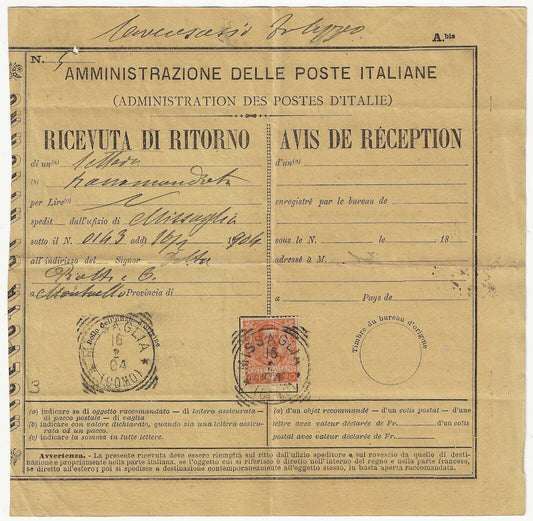 A.bis
N. 5
AMMINISTRAZIONE DELLE POSTE ITALIANE
(ADMINISTRATION DES POSTES D'ITALIE)
RICEVUTA DI RITORNO
di un(a) lettera
(b) raccomandata
per Lire(c)
spedit dall'ufizio di Missaglia
sotto il N. 0143 addì 16/2 1904
all'indirizzo del Signor Ditta
a Provincia di
AVIS DE RÉCEPTION
d'un(a)
enregistré par le bureau de
sous le N. le 18
adressé à M.
a Pays de
Bollo dell'ufizio d'origine
MISSAGLIA
16
2
04
(COMO)
MISSAGLIA
16
2
04
POSTE ITALIANE
20
Timbre du bureau d'origine
3
(a) indicare se di oggetto raccomandato — di lettera assicurata — di pacco postale — di vaglia
(b) indicare con valore dichiarato, quando sia una lettera assicurata od un pacco.
(c) indicare la somma in tutte lettere.
(a) d'un objet recommandé — d'un colis postal — d'une lettre avec valeur déclarée de Fr. d'un colis postal avec valeur déclarée de Fr.
Avvertenza. - La presente ricevuta deve essere riempita sul ritto dall'ufizio speditore e sul rovescio da quello di destinazione e propriamente nella parte italiana, se l'oggetto cui si riferisce è diretto nell'interno del regno e nella parte francese, se diretto all'estero; poi si spedisce a destinazione contemporaneamente all'oggetto stesso, in busta aperta raccomandata.